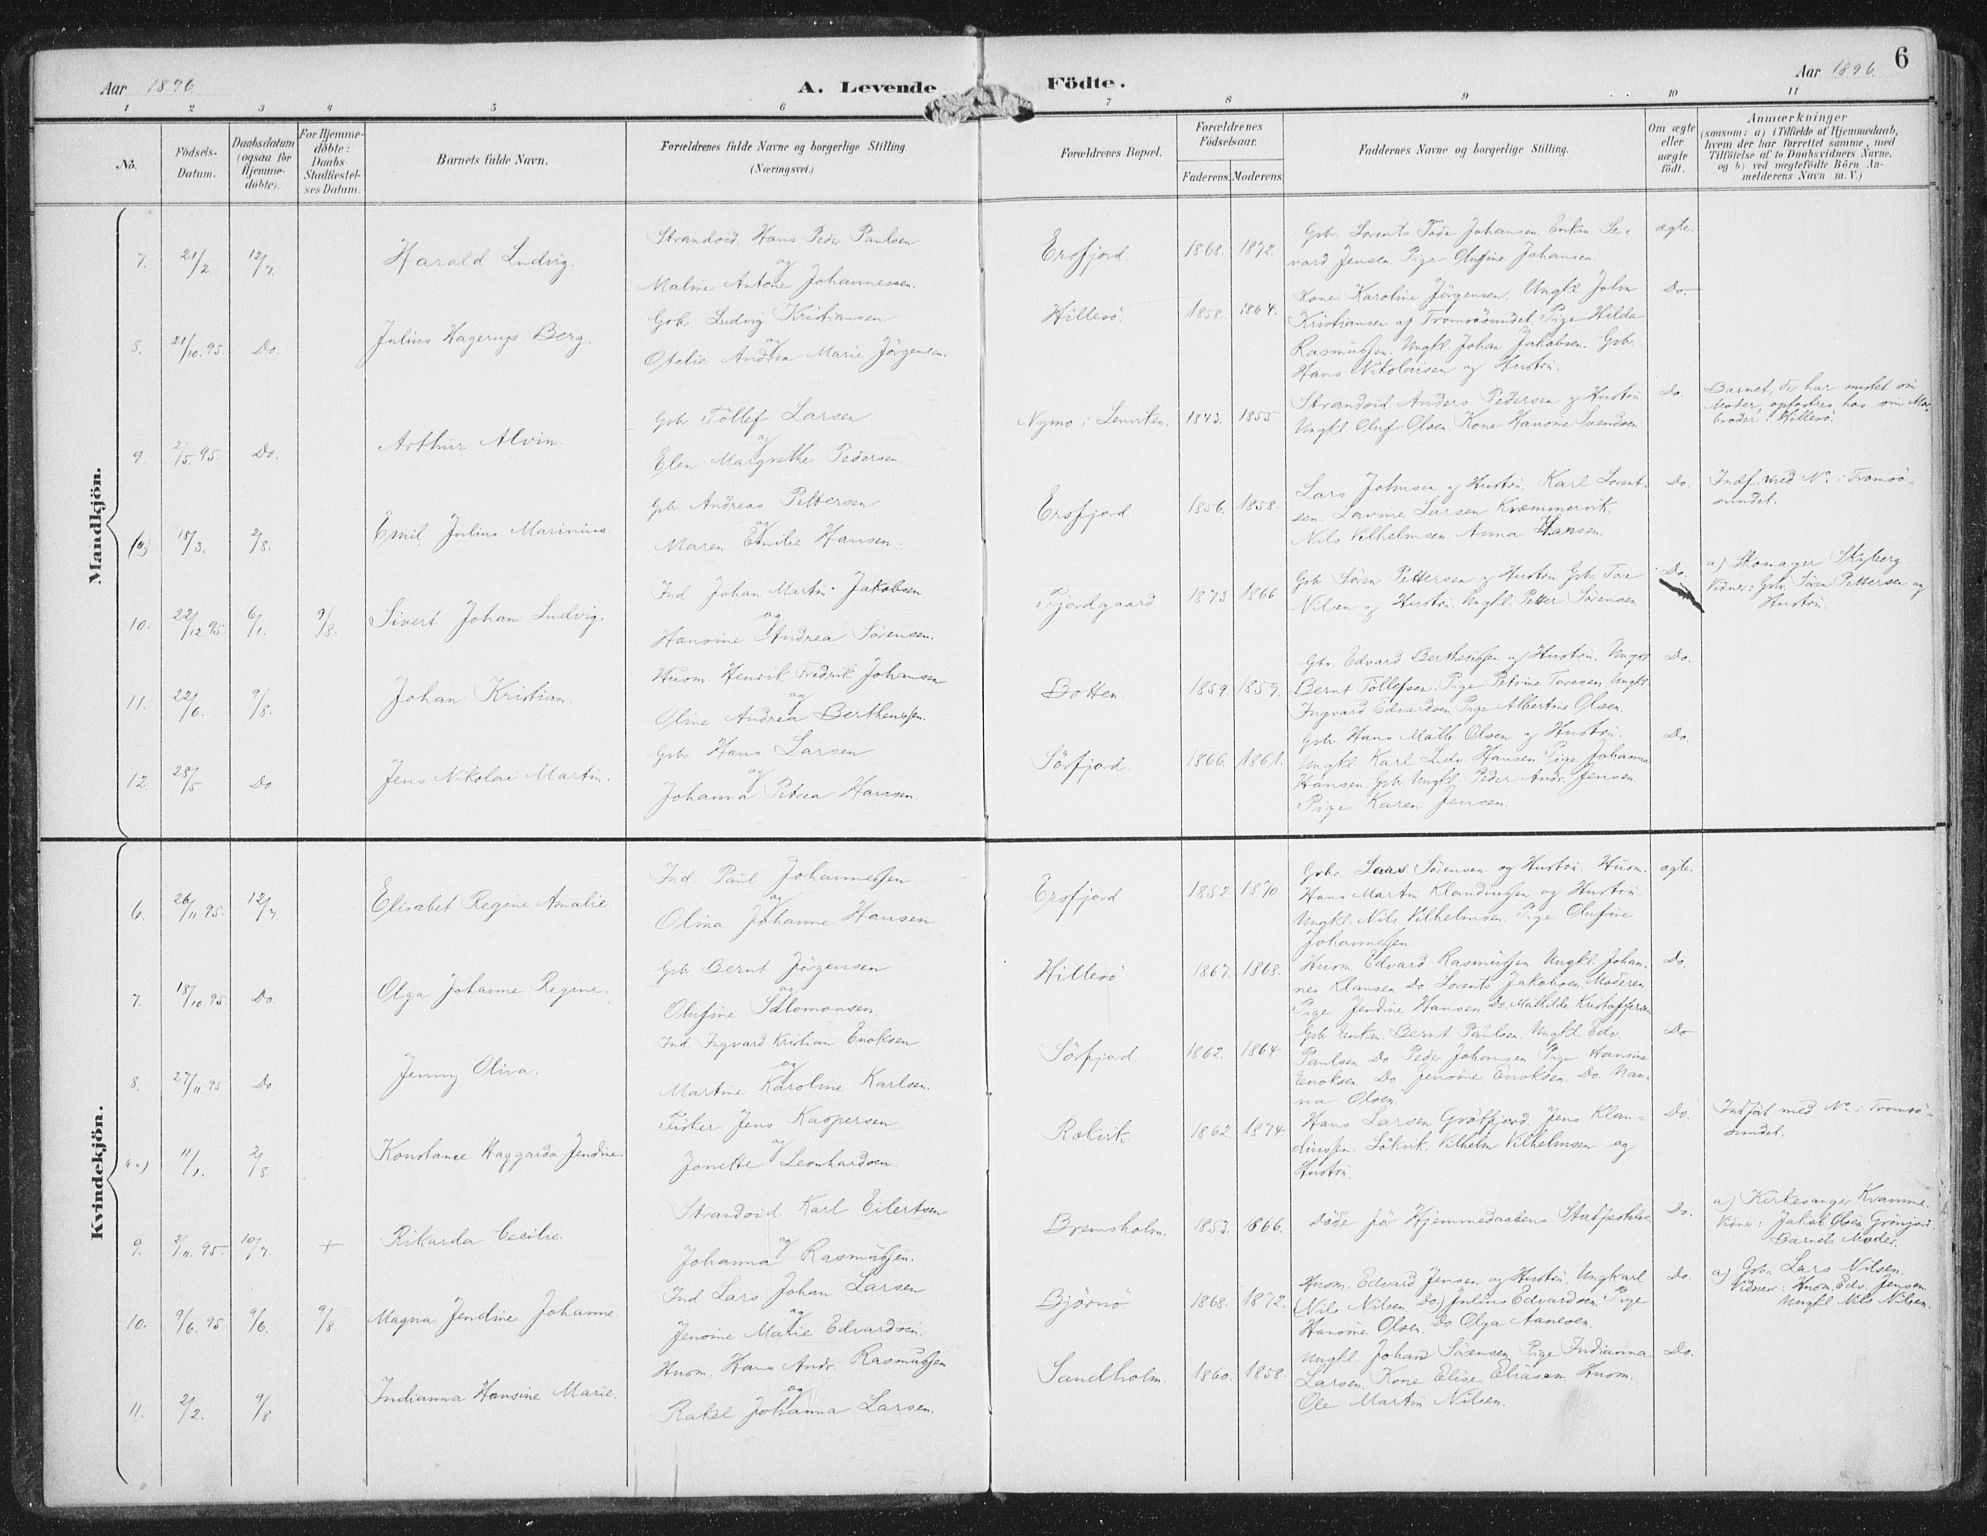 Aar 1896
A. Levende Födte.
Aar 1896
6
1 2 3 4 5 6 7 8 9 10 11
No.
Födsels-Datum.
Daabsdatum (ogsaa for Hjemme-döbte).
For Hjemme-döbte: Daabs-Stadfæstel-ses Datum.
Barnets fulde Navn.
Forældrenes fulde Navne og borgerlige Stilling. (Næringsvei.)
Forældrenes Bopæl.
Forældrenes Födselsaar.
Faderens. Moderens.
Faddernes Navne og borgerlige Stilling.
Om ægte eller uægte födt.
Anmærkninger
(saasom: a) i Tilfælde af Hjemmedaab, hvem der har forrettet samme, med Tilföielse af to Daabsvidners Navne, og b) ved uægtefödte Börn An-melderens Navn m. V.)
Mandkjön.
7. 21/2. 12/7. Harald Ludvig.
Strandsid. Hans Peder Paulsen
og
Maline Antone Johannessen.
Ersfjord. 1868. 1872.
Gbr. Lorents Tode Johansen. Enkm. Se-
vard Jensen. Pige Olufine Johansen.
ægte.
8. 21/10.95. Do. Julius Hagerup Berg.
Gbr. Ludvig Kristiansen
og
Otelie Andrea Marie Jørgensen.
Hillesö 1858. 1864.
Kone Karoline Jørgensen. Ungkl. John
Kristiansen af Tromsösundet. Pige Hilda
Rasmussen. Ungkl. Johan Jakobsen. Gbr.
Hans Nikolaisen og Hustru.
Do.
9. 2/5.95. Do. Arthur Alvin.
Gbr. Töllef Larsen
og
Elen Margrethe Pedersen.
Nymo i Lenvik 1843. 1855.
Strandsid. Anders Pedersen og Hustru
Ungkl. Oluf Olsen. Kone Hansine Svendsen
Do.
Barnet, der har mistet sin
Moder, opfostres hos sin Mor-
broder i Hillesö.
18/3. 2/8. Emil Julius Marinius
Gbr. Andreas Pettersen
og
Maren Emilie Hansen.
Ersfjord. 1856. 1858.
Lars Johnsen og Hustru. Karl Lorent-
sen. Lavine Larsen Kræmmervik.
Nils Vilhelmsen. Anna Hansen.
Do.
Indf. med No i Tromsö-
sundet.
10. 22/12.95. 6/1. 9/8. Sivert Johan Ludvig.
Ind. Johan Martin Jakobsen
og
Hansine Andrea Sörensen.
Fjordgaard 1873. 1866
Gbr. Sören Pettersen og Hustru. Gbr. Tore
Nilsen og Hustru. Ungkl. Petter Sörensen
Do.
a) Skomager Skyberg.
Vidner: Gbr. Sören Pettersen og
Hustru.
11. 22/6. 9/8. Johan Kristian.
Husm. Henrik Fredrik Johansen
og
Oline Andrea Bertheussen.
Botten. 1859. 1859.
Gbr. Edvard Bertheussen og Hustru. Ungkl.
Bernt Töllefsen. Pige Petrine Toresen. Ungkl.
Ingvard Edvardsen. Pige Albertine Olsen.
Do.
12. 28/5. Do Jens Nikolai Martin.
Gbr. Hans Larsen
og
Johanna Petrea Hansen.
Sörfjord. 1866. 1861.
Gbr. Hans Math. Olsen og Hustru.
Ungkl. Karl Ludv. Hansen. Pige Johanna
Hansen. Gbr. Ungkl. Peder Andr. Jensen.
Pige Karen Jensen.
Do.
Kvindekjön.
6. 26/11.95. 12/7. Elisabet Regine Amalie.
Ind. Paul Johannessen
og
Olina Johanne Hansen
Ersfjord 1852. 1870.
Gbr. Lars Sörensen og Hustru. Husm.
Hans Martin Klaudiussen og Hustru
Ungkl. Nils Vilhelmsen. Pige Olufine
Johannessen.
ægte.
7. 18/10.95. Do. Olga Johanne Regine.
Gbr. Bernt Jörgensen
og
Olufine Salomonsen.
Hillesö 1867. 1868.
Husm. Edvard Rasmussen. Ungkl. Johan-
nes Klausen. Do. Lorents Jakobsen. Moderen
Pige Jendine Hansen. Do. Mathilde Kristoffersen
Do.
8. 27/11.95 Do. Jenny Oliva.
Ind. Ingvard Kristian Enoksen
og
Martine Karoline Karlsen.
Sörfjord. 1862. 1864.
Gbr. Enkm. Bernt Paulsen. Ungkl. Edv.
Paulsen. Do. Peder Johansen. Pige Hansine
Enoksen. Do. Jensine Enoksen. Do. Nan-
na Olsen.
Do
11/1. 2/8. Konstance Haggarda Jendine.
Fisker Jens Kaspersen
og
Janette Leonhardsen.
Rækvik 1862. 1874.
Hans Larsen Grötfjord. Jens Klau-
diussen. Sökvik. Vilhelm Vilhelmsen og
Hustru.
Do.
Indfört med No i Tromsö-
sundet.
9. 2/11.95. 10/7. + Rikarda Cecilie.
Strandsid. Karl Eilertsen
og
Johanna Rasmussen.
Bremsholm. 1853. 1866.
Döde før Hjemmedaabens Stadfæstelse
Do.
a) Kirkesanger Kvamme.
Vidner: Jakob Olsen Grönjord.
Barnets Moder.
10. 9/6.95 9/6. 9/8 Magna Jendine Johanne.
Ind. Lars Johan Larsen
og
Jensine Marie Edvardsen.
Bjørnö. 1868. 1872.
Husm. Edvard Jensen og Hustru. Ungkarl
(Nils Nilsen. Do.) Julius Edvardsen. Pige
Hansine Olsen. Do Olga Aanesen.
Do.
a) Gbr. Lars Nilsen.
Vidner: Husm. Edv. Jensen
Ungkl. Nils Nilsen.
11. 2/2. 9/8 Indianna Hansine Marie.
Husm. Hans Andr. Rasmussen
og
Rakel Johanna Larsen.
Sandholm. 1860. 1858.
Ungkl. Johan Sörensen. Pige Indianna
Larsen. Kone Elise Eliasen. Husm.
Ole Martin Nilsen.
Do.